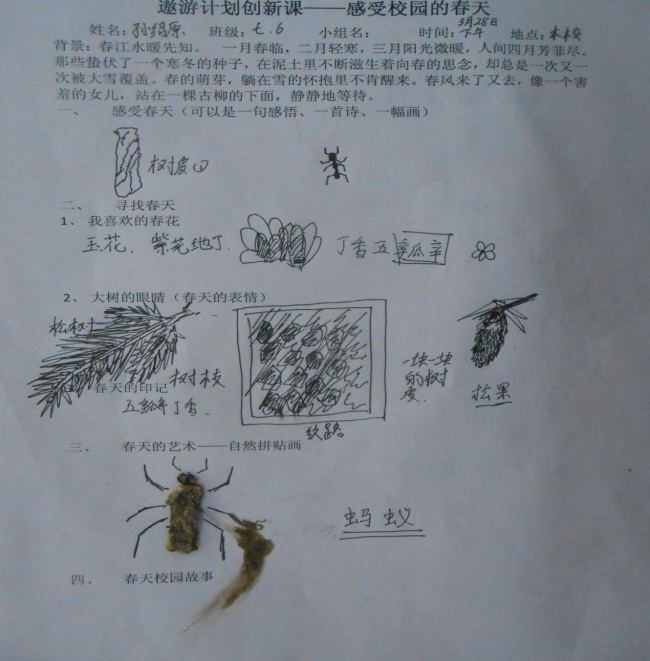 遨游计划创新课——感受校园的春天
姓名：孙绍原 班级：七.6 小组名： 时间：3月28日下午 地点：本校
背景：春江水暖先知。 一月春临，二月轻寒，三月阳光微暖，人间四月芳菲尽。
那些蛰伏了一个寒冬的种子，在泥土里不断滋生着向春的思念，却总是一次又一
次被大雪覆盖。春的萌芽，躺在雪的怀抱里不肯醒来。春风来了又去，像一个害
羞的女儿，站在一棵古柳的下面，静静地等待。
一、 感受春天（可以是一句感悟、一首诗、一幅画）
树皮
二、 寻找春天
1、我喜欢的春花
玉花，紫花地丁
丁香五瓣
2、大树的眼睛（春天的表情）
松树叶
春天的印记
树枝
五瓣丁香
纹路
一块一块
的树
皮
松果
三、 春天的艺术——自然拼贴画
蚂蚁
四、 春天校园故事